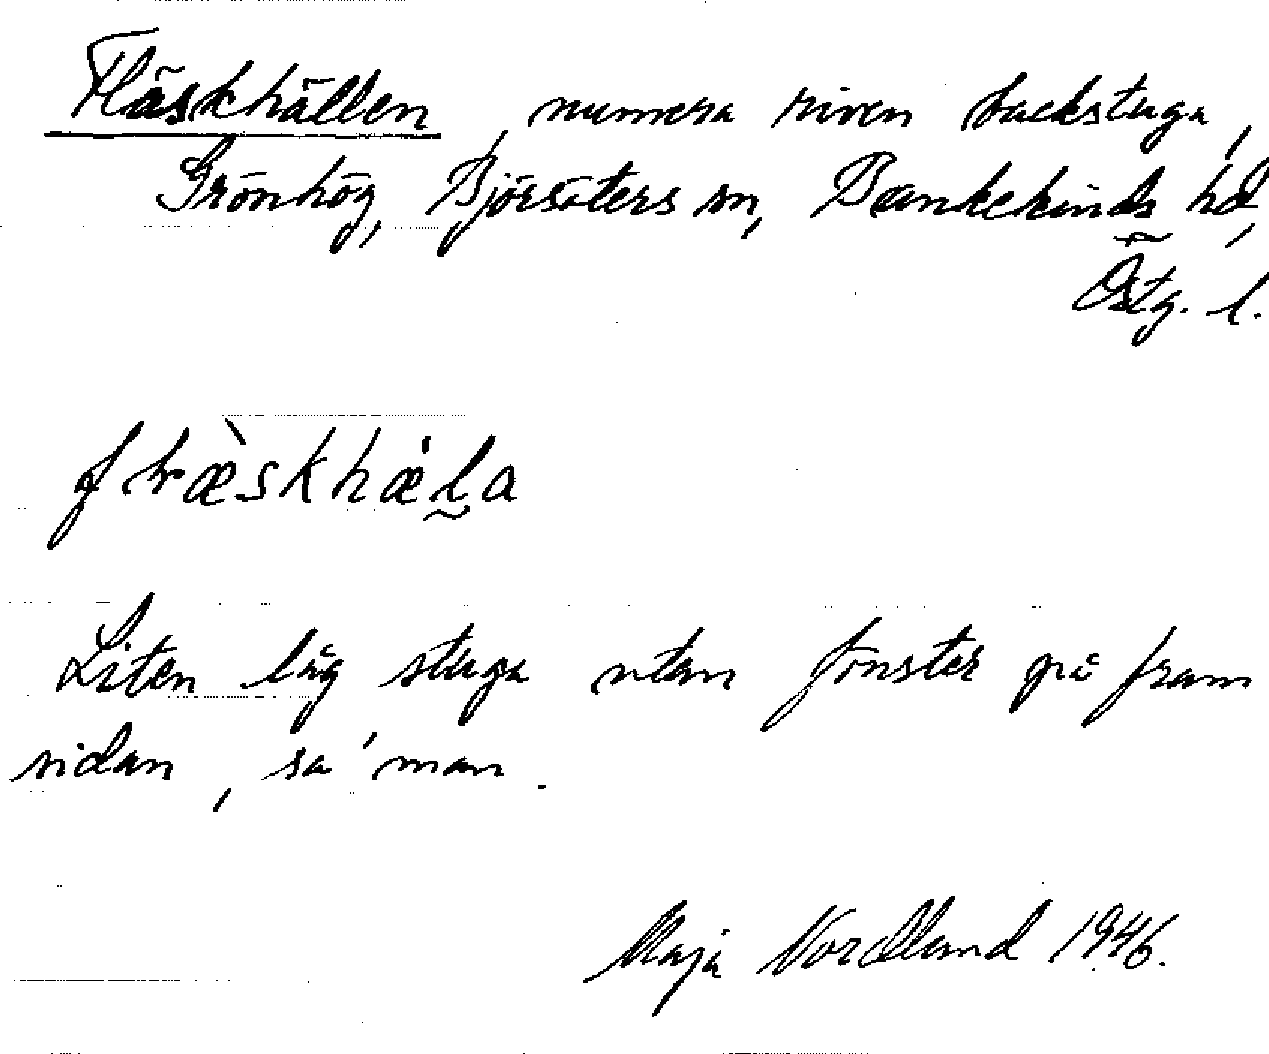 Fläskhällen, numera riven backstuga,
Grönhög, Björsäters sn, Bankekinds hd,
Östg. l.
Liten låg stuga utan fönster på fram
sidan, sa' man.
Maja Nordlund 1946.